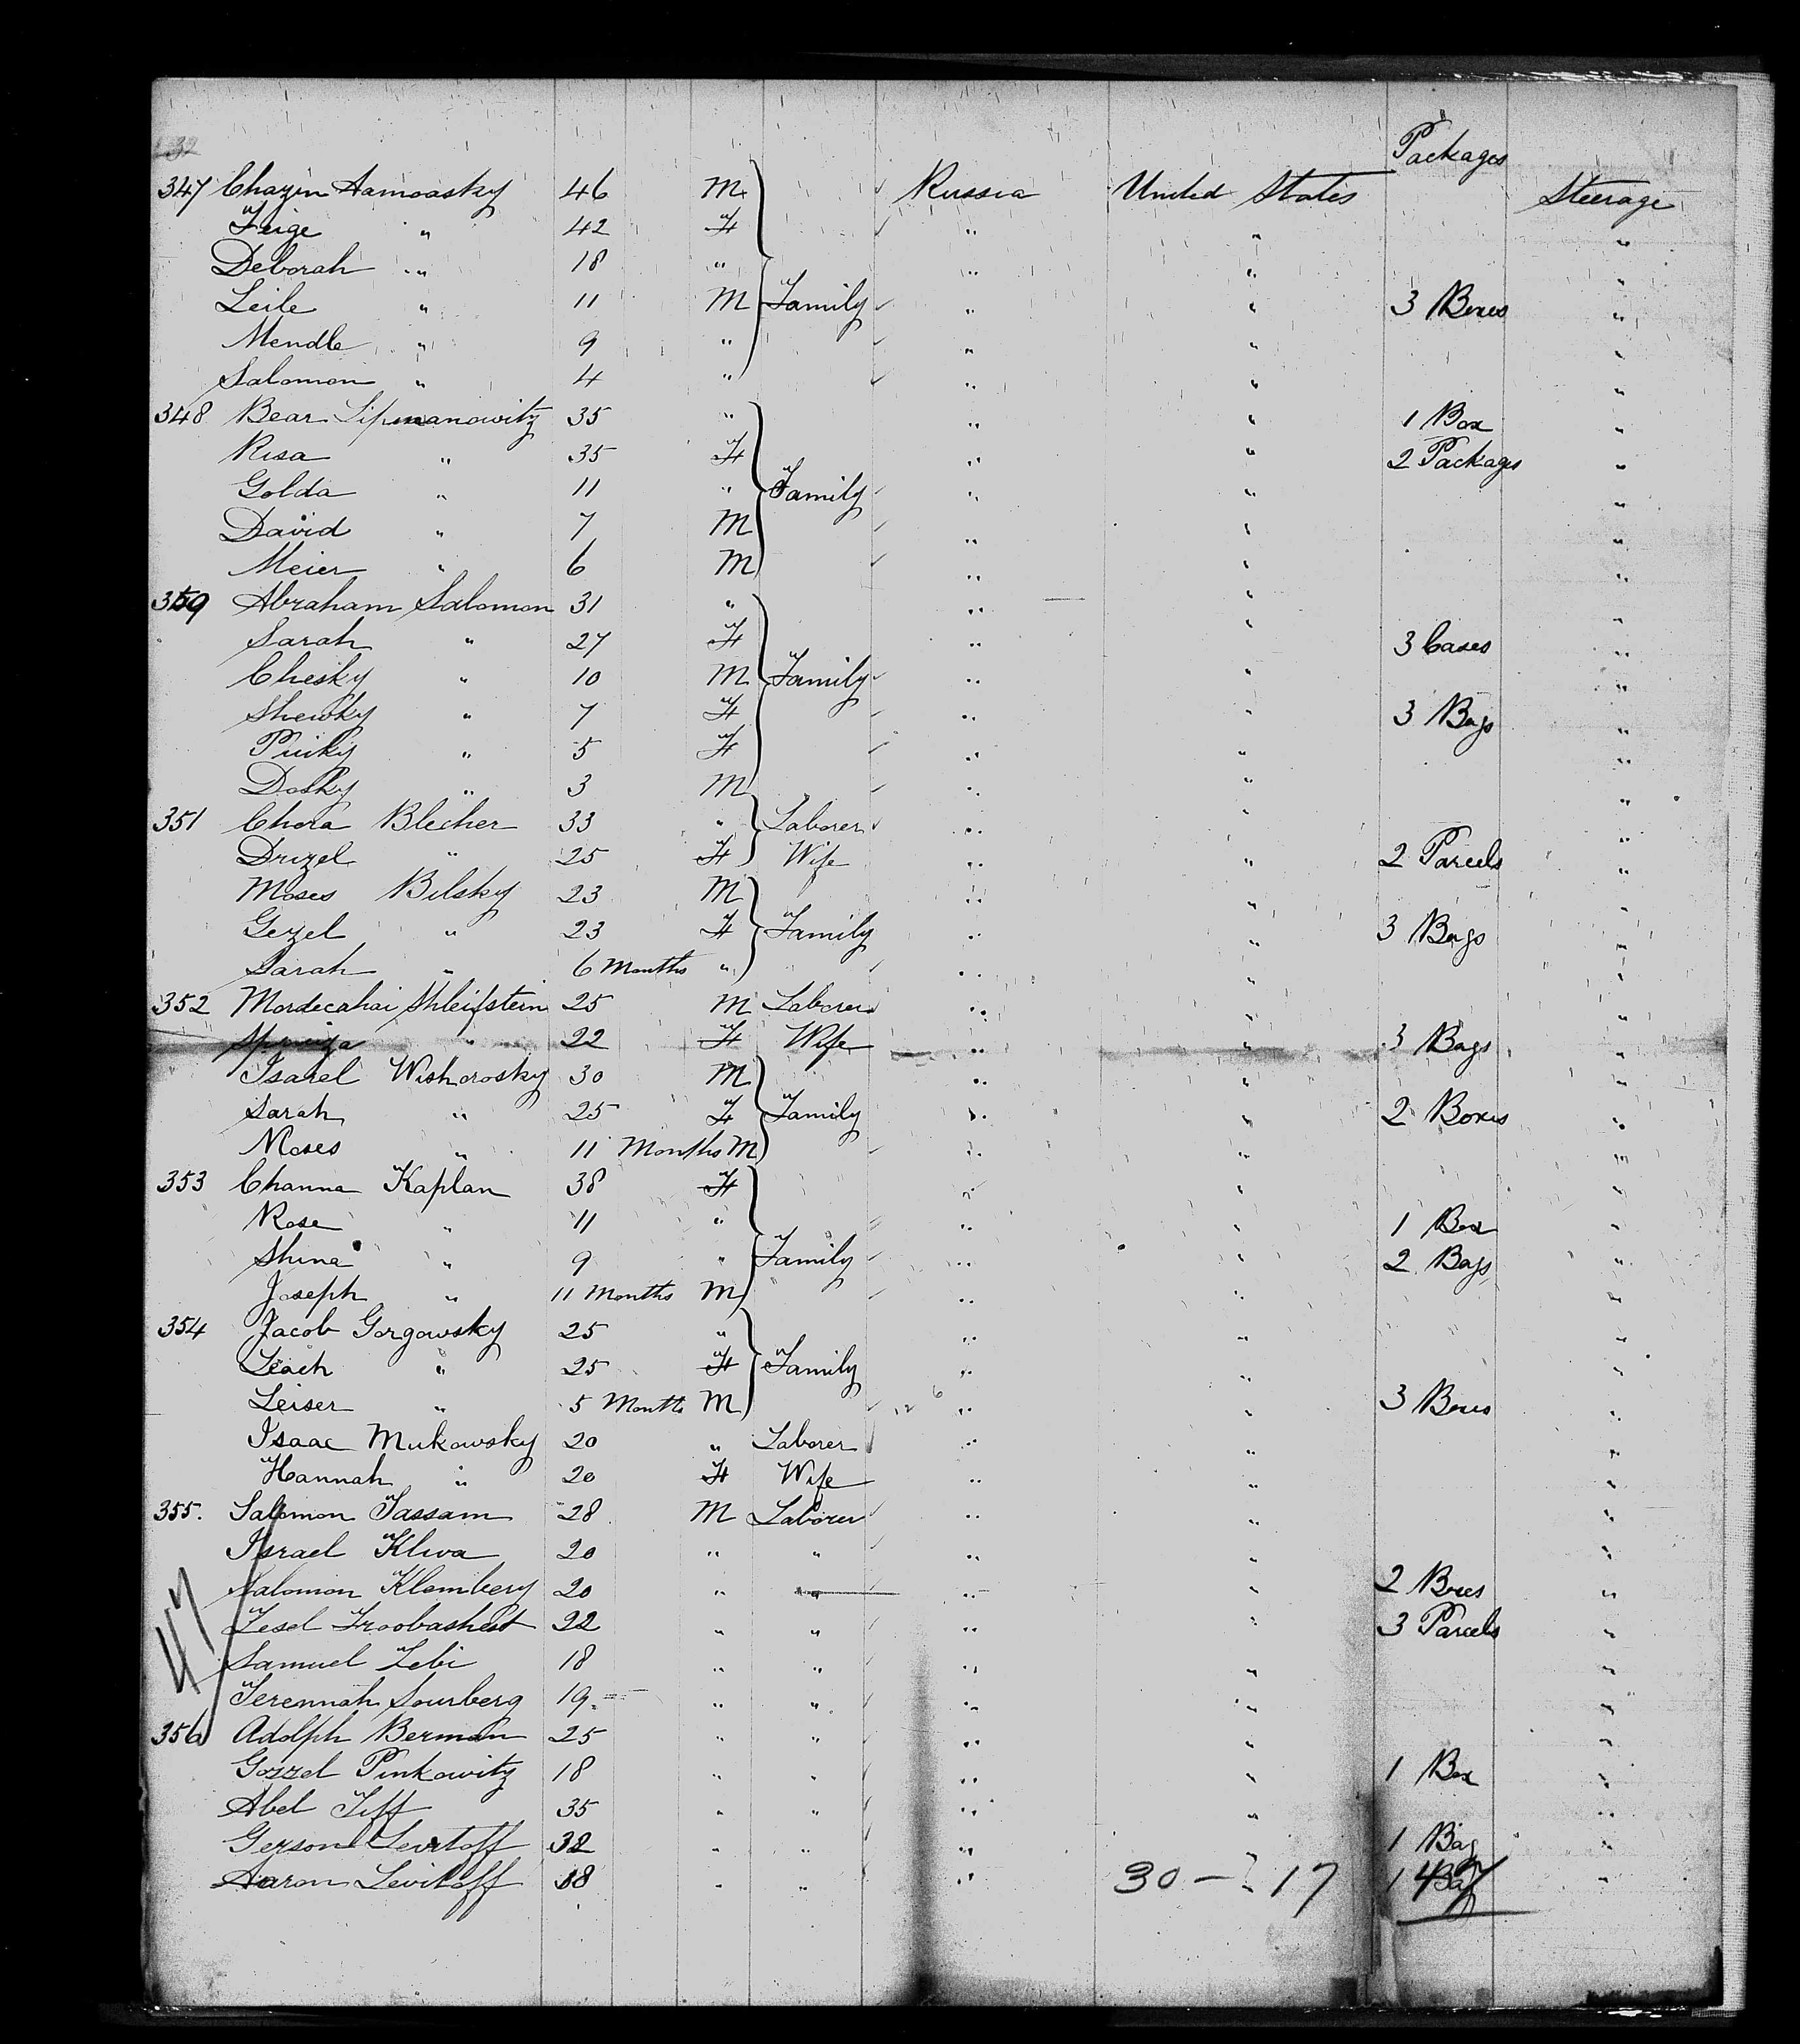 32
Packages
347 Chazin Aamoasky 46 M Russia United States Steerage
Feige " 42 F " " "
Deborah " 18 " " " "
Leile " 11 M Family " " 3 Boxes "
Mendle " 9 " " " "
Salomon " 4 " " " "
348 Bear Lipmanowitz 35 " " " 1 Box "
Risa " 35 F " " 2 Packages "
Golda " 11 " Family " " "
David " 7 M " " "
Meier " 6 M " " "
359 Abraham Salomon 31 " " " "
Sarah " 27 F " " 3 Cases "
Chesky " 10 M Family " " "
Shewky " 7 F " " 3 Bags "
Puiky " 5 F " " "
Dosky " 3 M " " "
351 Chora Blecher 33 " Laborer " " "
Drizel " 25 F Wife " " 2 Parcels "
Moses Bilsky 23 M " " "
Gezel " 23 F Family " " 3 Bags "
Sarah " 6 Months " " " "
352 Mordecahai Shleifstein 25 M Laborer " " "
" 22 F Wife " " 3 Bags "
Isarel Wishorosky 30 M " " "
Sarah " 25 F Family " " 2 Boxes "
Moses " 11 Months M " " "
353 Channa Kaplan 38 F " " "
Rose " 11 " " " 1 Box "
Shina " 9 " Family " " 2 Bags "
Joseph " 11 Months M " " "
354 Jacob Gorgowsky 25 " " " "
Leach " 25 F Family " " "
Leiser " 5 Months M " " 3 Boxes "
Isaac Mukowsky 20 " Laborer " " "
Hannah " 20 F Wife " " "
355. Salomon Tassam 28 M Laborer " " "
Israel Kliva 20 " " " " "
Salomon Klemberg 20 " " " " 2 Boxes "
Zesel 22 " " " " 3 Parcels "
Samuel Zebi 18 " " " " "
47
Jerennah Sourberg 19 " " " " "
356 Adolph Berman 25 " " " " "
Gozzel Pinkowitz 18 " " " " 1 Box "
Abel Tiff 35 " " " " "
Gerson Levitoff 32 " " " " 1 Bag "
Aaron Levitoff 18 " " " 30 - 17 1 Bag 47 "